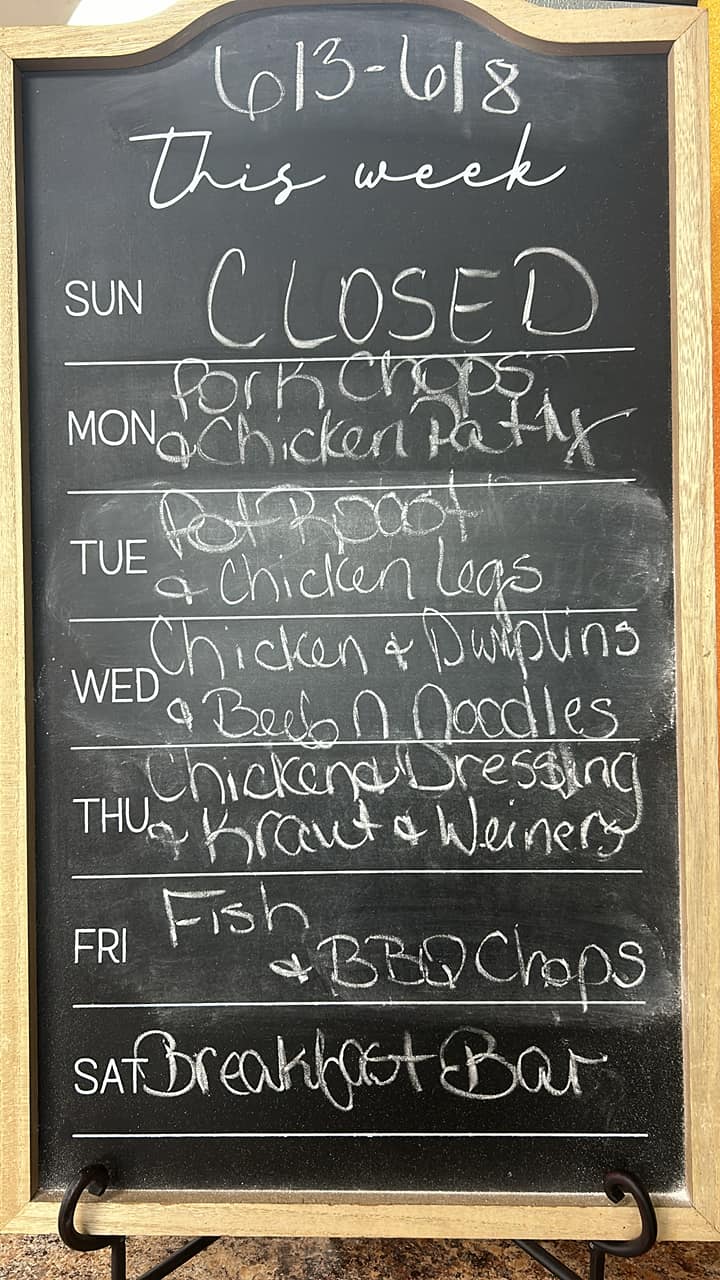 6/3-6/8
This week
SUN CLOSED
MON Pork Chops
& Chicken Patty
TUE Pot Roast
& Chicken Legs
WED Chicken & Dumplins
& Beef n noodles
THU Chicken & Dressing
& Kraut & Weiners
FRI Fish
& BBQ Chops
SAT Breakfast Bar